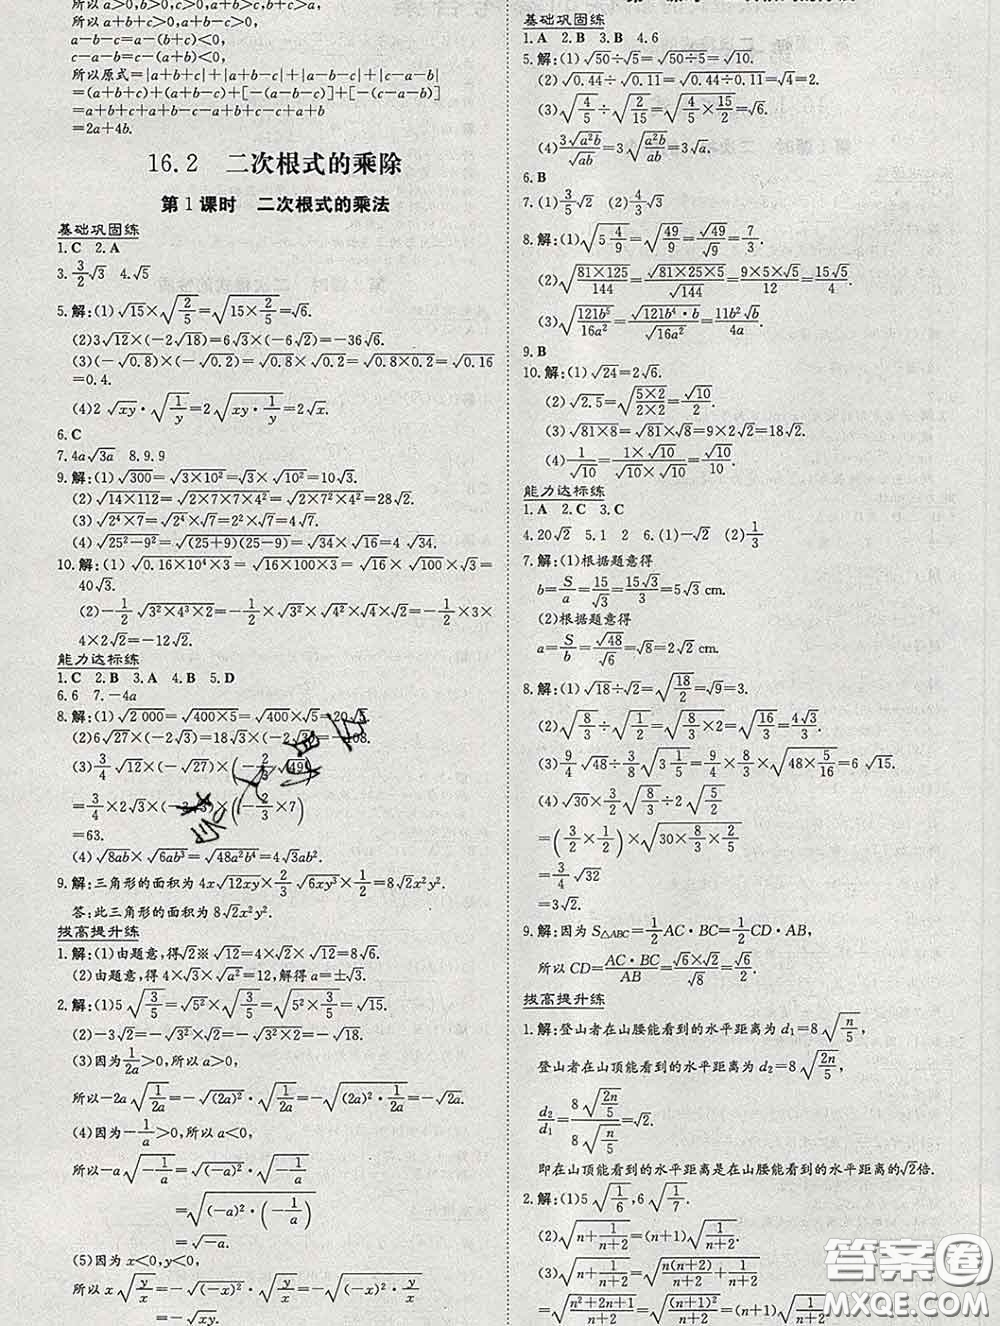 所以 a+b+c>0, b+c>a.
所以 a+b+c>0, a+b-c>0,
a-b-c=a-(b+c)<0,
c-a-b=c-(a+b)<0,
所以原式=|a+b+c|+|a+b-c|+|a-b-c|+|c-a-b|
=(a+b+c)+(a+b-c)+[-(a-b-c)]+[-(c-a-b)]
=a+b+c+a+b-c-a+b+c-c+a+b
=2a+4b.
16.2 二次根式的乘除
第1课时 二次根式的乘法
基础巩固练
1.C 2.A
3.3/2√3 4.√5
5.解:(1)√15×√(2/5)=√(15×2/5)=√6.
(2)3√12×(-2√18)=6√3×(-6√2)=-36√6.
(3)(-√0.8)×(-√0.2)=√0.8×√0.2=√(0.8×0.2)=√0.16
=0.4.
(4)2√(xy)·√(1/y)=2√(xy·1/y)=2√x.
6.C
7.4a√(3a) 8.9.9
9.解:(1)√300=√(3×10²)=√3×√10²=10√3.
(2)√(14×112)=√(2×7×7×4²)=√2×√7²×√4²=28√2.
(3)√(2⁴×7)=√2⁴×√7=2²√7=4√7.
(4)√(25²-9²)=√((25+9)(25-9))=√34×√16=4√34.
10.解:(1)√(0.16×10⁴×3)=√(16×100×3)=√16×√100×√3=
40√3.
(2)-1/2√(3²×4³×2)=-1/2×√3²×√4²×√4×√2=-1/2×3×
4×2√2=-12√2.
能力达标练
1.C 2.B 3.A 4.B 5.D
6.6 7.-4a
8.解:(1)√2 000=√(400×5)=√400×√5=20√5.
(2)6√27×(-2√3)=18√3×(-2√3)=-108.
(3)3/4√12×(-√27)×(-2/3√49)
=3/4×2√3×(-3√3)×(-2/3×7)
=63.
(4)√(8ab)×√(6ab³)=√(48a²b⁴)=4√3ab².
9.解:三角形的面积为4x√(12xy)×2/3√(6xy³)×1/2=8√2x²y².
答:此三角形的面积为8√2x²y².
拔高提升练
1.解:(1)由题意,得√2※√12=4×√2×√12=8√6.
(2)由题意,得4×√3×√a²=12,解得a=±√3.
2.解:(1)5√(3/5)=√5²×√(3/5)=√(5²×3/5)=√15.
(2)-3√2=-√3²×√2=-√(3²×2)=-√18.
(3)因为1/(2a)>0,所以a>0,
所以-2a√(1/(2a))=-√(2a)²·√(1/(2a))=-√((2a)²·1/(2a))=-√(2a).
(4)因为-1/a>0,所以a<0,
所以-a√(-1/a)=√(-a)²·√(-1/a)
=√((-a)²·(-1/a))
=√(-a).
(5)因为x<0,所以y<0,
所以x√(y/x)=-√(-x)²×√(y/x)=-√(x²·y/x)
=-√(xy).
基础巩固练
1.A 2.B 3.B 4.6
5.解:(1)√50÷√5=√(50÷5)=√10.
(2)√0.44÷√0.11=√(0.44÷0.11)=√4=2.
(3)√(4/5)÷√(2/15)=√(4/5×15/2)=√6.
(4)3√(a²b)/√(ab)=3√(a²b/ab)=3√a.
6.B
7.(1)3/5√2 (2)4/3√3
8.解:(1)√(5 4/9)=√(49/9)=√49/√9=7/3.
(2)√(81×125/144)=√(81×25×5)/√144=9×5√5/12=15√5/4.
(3)√(121b⁵/16a²)=√(121b⁴·b)/√(16a²)=11b²√b/4a.
9.B
10.解:(1)√24=2√6.
(2)√2.5=√(5×2/2×2)=√10/2.
(3)√(81×8)=√81×√8=9×2√2=18√2.
(4)1/√10=1×√10/√10×√10=√10/10.
能力达标练
1.A 2.C 3.C
4.20√2 5.1 2 6.(1)-√2 (2)1/3
7.解:(1)根据题意得
b=S/a=15/√3=15√3/3=5√3 cm.
(2)根据题意得
a=S/b=√48/√6=√8=2√2 cm.
8.解:(1)√18÷√2=√(18/2)=√9=3.
(2)√(8/3)÷√(1/2)=√(8/3×2)=√(16/3)=4√3/3.
(3)9/4√48÷3/8√(3 1/5)=9/4×8/3×√(48×5/16)=6√15.
(4)√30×3/2√(8/3)÷2√(5/2)
=(3/2×1/2)×√(30×8/3×2/5)
=3/4√32
=3√2.
9.解:因为S△ABC=1/2AC·BC=1/2CD·AB,
所以CD=AC·BC/AB=√6×√2/√8=√6/2.
拔高提升练
1.解:登山者在山腰能看到的水平距离为d₁=8√(n/5),
登山者在山顶能看到的水平距离为d₂=8√(2n/5),
d₂/d₁=8√(2n/5)/8√(n/5)=√2.
即在山顶能看到的水平距离是在山腰能看到的水平距离的√2倍.
2.解:(1)5√(1/6),6√(1/7).
(2)√(n+1/(n+2))=(n+1)√(1/(n+2)).
(3)√(n+1/(n+2))=√(n(n+2)/(n+2)+1/(n+2))
=√((n²+2n+1)/(n+2))=√((n+1)²/(n+2))=(n+1)√(1/(n+2)).
答案卷
MXQE.COM